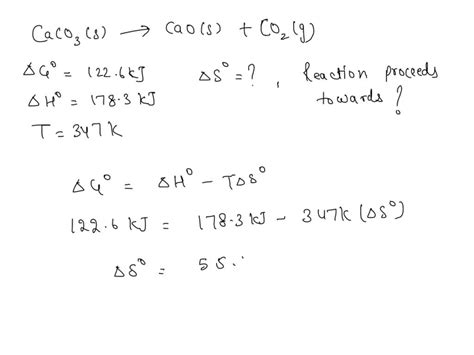 CaCO₃(s) → CaO(s) + CO₂(g)
ΔG° = 122.6 kJ ΔS° = ? , Reaction proceeds towards ?
ΔH° = 178.3 kJ
T = 347 K
ΔG° = ΔH° - TΔS°
122.6 kJ = 178.3 kJ - 347K (ΔS°)
ΔS° = 55..